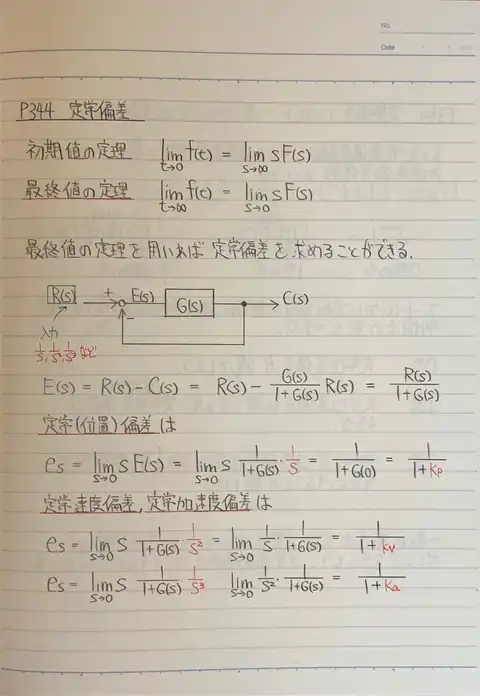 No
Date
P344 定常偏差
初期値の定理 lim_{t→0} f(t) = lim_{s→∞} sF(s)
最終値の定理 lim_{t→∞} f(t) = lim_{s→0} sF(s)
最終値の定理を用いれば定常偏差を求めることができる.
R(s) + E(s) G(s) C(s)
−
入力
1/s, 1/s², 1/s³ など
E(s) = R(s) − C(s) = R(s) − G(s)/(1+G(s)) R(s) = R(s)/(1+G(s))
定常(位置)偏差は
es = lim_{s→0} s E(s) = lim_{s→0} s 1/(1+G(s)) · 1/s = 1/(1+G(0)) = 1/(1+Kp)
定常速度偏差, 定常加速度偏差は
es = lim_{s→0} s 1/(1+G(s)) · 1/s² = lim_{s→0} 1/s · 1/(1+G(s)) = 1/(1+Kv)
es = lim_{s→0} s 1/(1+G(s)) 1/s³ lim_{s→0} 1/s² · 1/(1+G(s)) = 1/(1+Ka)